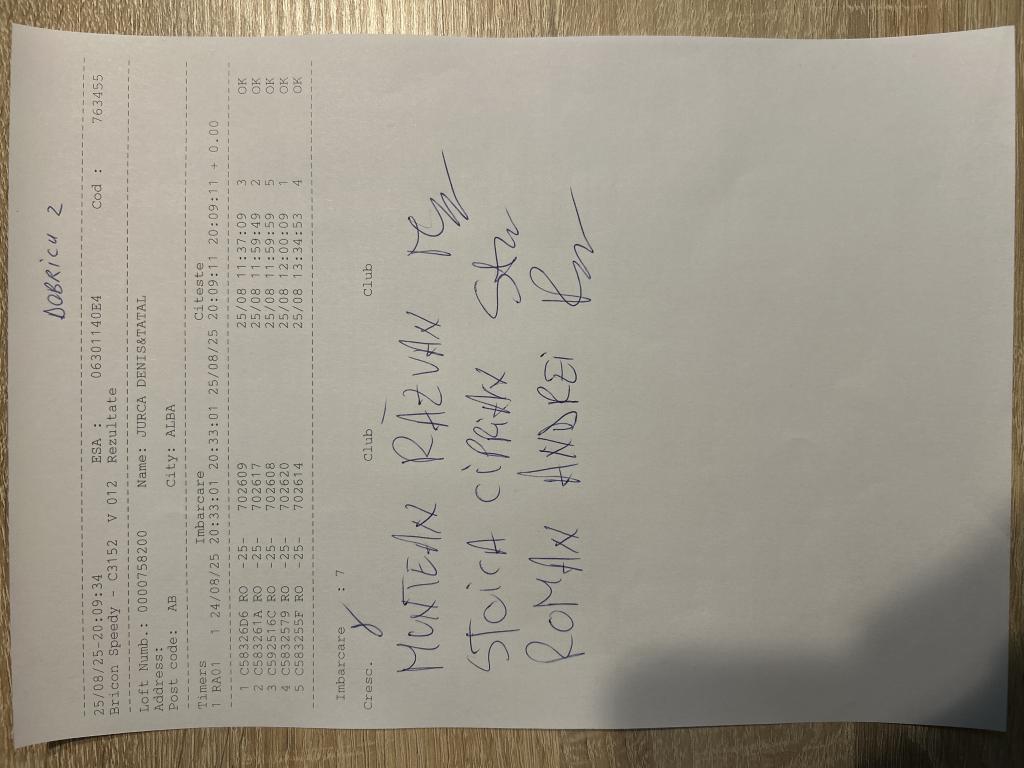 DOBRICU 2
25/08/25-20:09:34 ESA : 06301140E4 Cod : 763455
Bricon Speedy - C3152 V 012 Rezultate
Loft Numb.: 0000758200 Name: JURCA DENIS&TATAL
Address:
Post code: AB City: ALBA
Timers Imbarcare Citeste
1 RA01 1 24/08/25 20:33:01 20:33:01 25/08/25 20:09:11 20:09:11 + 0.00
1 C58326D6 RO -25- 702609 25/08 11:37:09 3 OK
2 C583261A RO -25- 702617 25/08 11:59:49 2 OK
3 C592516C RO -25- 702608 25/08 11:59:59 5 OK
4 C5832579 RO -25- 702620 25/08 12:00:09 1 OK
5 C583255F RO -25- 702614 25/08 13:34:53 4 OK
Imbarcare : 7
Cresc. Club Club
MUNTEAN RĂZVAN
STOICA CIPRIAN
ROMAN ANDREI